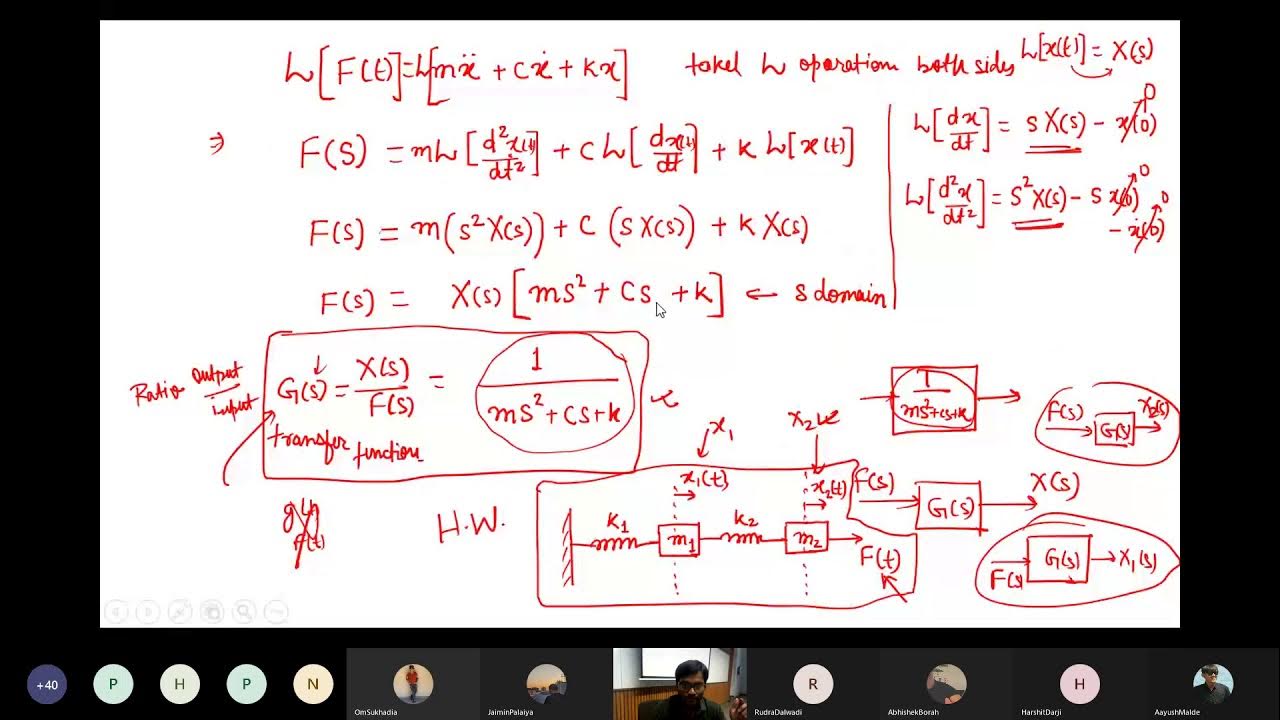 L[F(t)] = L[mẍ + cẋ + kx] takel L operation both sides L[x(t)] = X(s)
⇒ F(S) = mL[d²x(t)/dt²] + C L[dx(t)/dt] + K L[x(t)]
L[dx/dt] = S X(s) - x(0) 0
F(s) = m(s²X(s)) + C (S X(s)) + K X(s)
L[d²x/dt²] = S²X(s) - S x(0) 0
- ẋ(0) 0
F(s) = X(s) [ms² + Cs + k] ← s domain
Ratio output/input
G(s) = X(s)/F(s) = 1/(ms² + cs + k)
transfer function
1/(ms² + cs + k)
F(s) G(s) X2(s)
x1 x2
x1(t) x2(t)
F(s) G(s) X(s)
F(t)
H.W.
K1 m1 K2 m2 F(t)
F(s) G(s) X1(s)
+40 P H P N R H
OmSukhadia JaiminPalaiya RudraDalwadi AbhishekBorah HarshitDarji AayushMalde